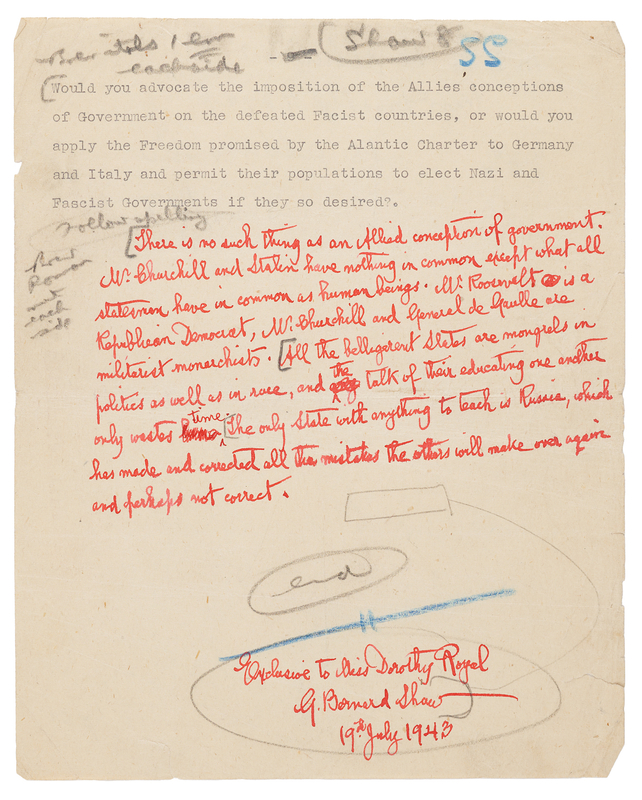 Shaw 8
SS
each side
Would you advocate the imposition of the Allies conceptions
of Government on the defeated Facist countries, or would you
apply the Freedom promised by the Alantic Charter to Germany
and Italy and permit their populations to elect Nazi and
Fascist Governments if they so desired?.
Follow spelling
There is no such thing as an Allied conception of government.
Mr Churchill and Stalin have nothing in common except what all
statesmen have in common as human beings. Mr Roosevelt is a
Republican Democrat, Mr Churchill and General de Gaulle are
militarist monarchists. All the belligerent States are mongrels in
politics as well as in race, and the talk of their educating one another
only wastes time. The only State with anything to teach is Russia, which
has made and corrected all the mistakes the others will make over again
and perhaps not correct.
end
Exclusive to Miss Dorothy Royal
G. Bernard Shaw
19th July 1943